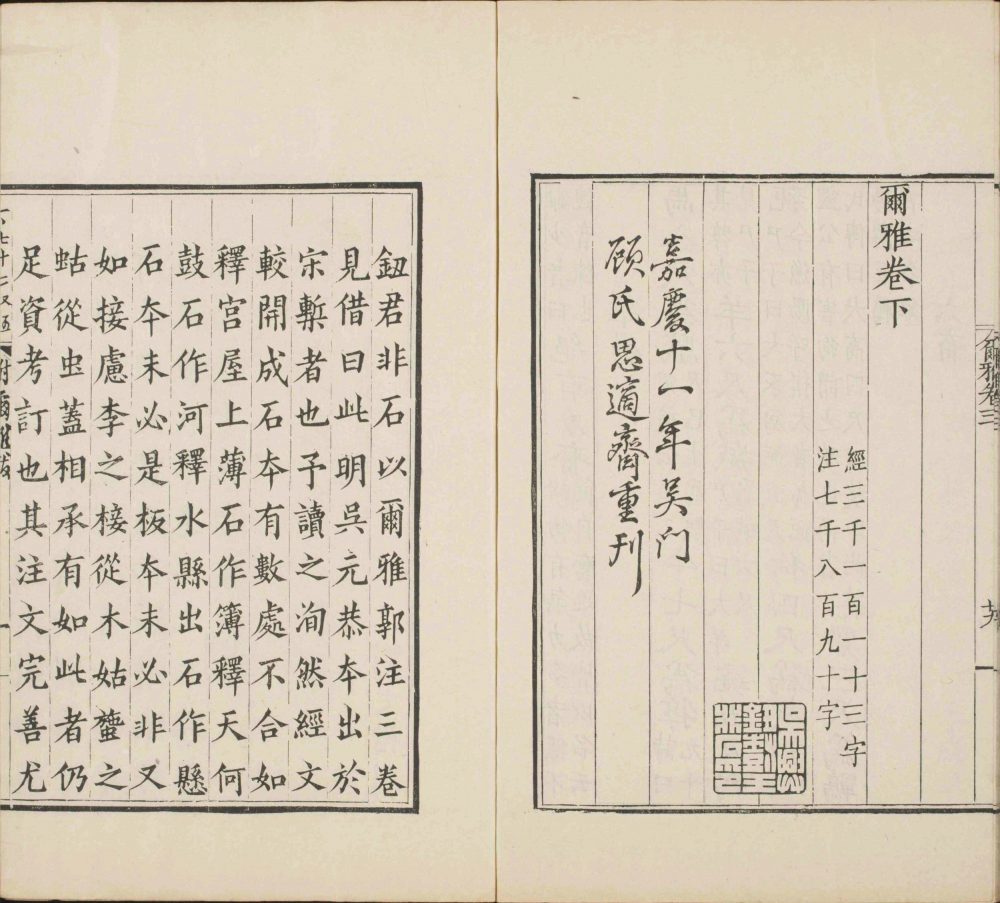 爾雅卷三
爾雅卷下
經三千一百一十三字
注七千八百九十字
嘉慶十一年吴门
顾氏思適齋重刊
鈕君非石以爾雅郭注三卷
見借曰此明吳元恭本出於
宋槧者也予讀之洵然經文
較開成石本有數處不合如
釋宮屋上薄石作簿釋天何
鼓石作河釋水縣出石作懸
石本未必是板本未必非又
如接慮李之椄從木姑䗐之
蛄從虫蓋相承有如此者仍
足資考訂也其注文完善尤
附爾雅跋